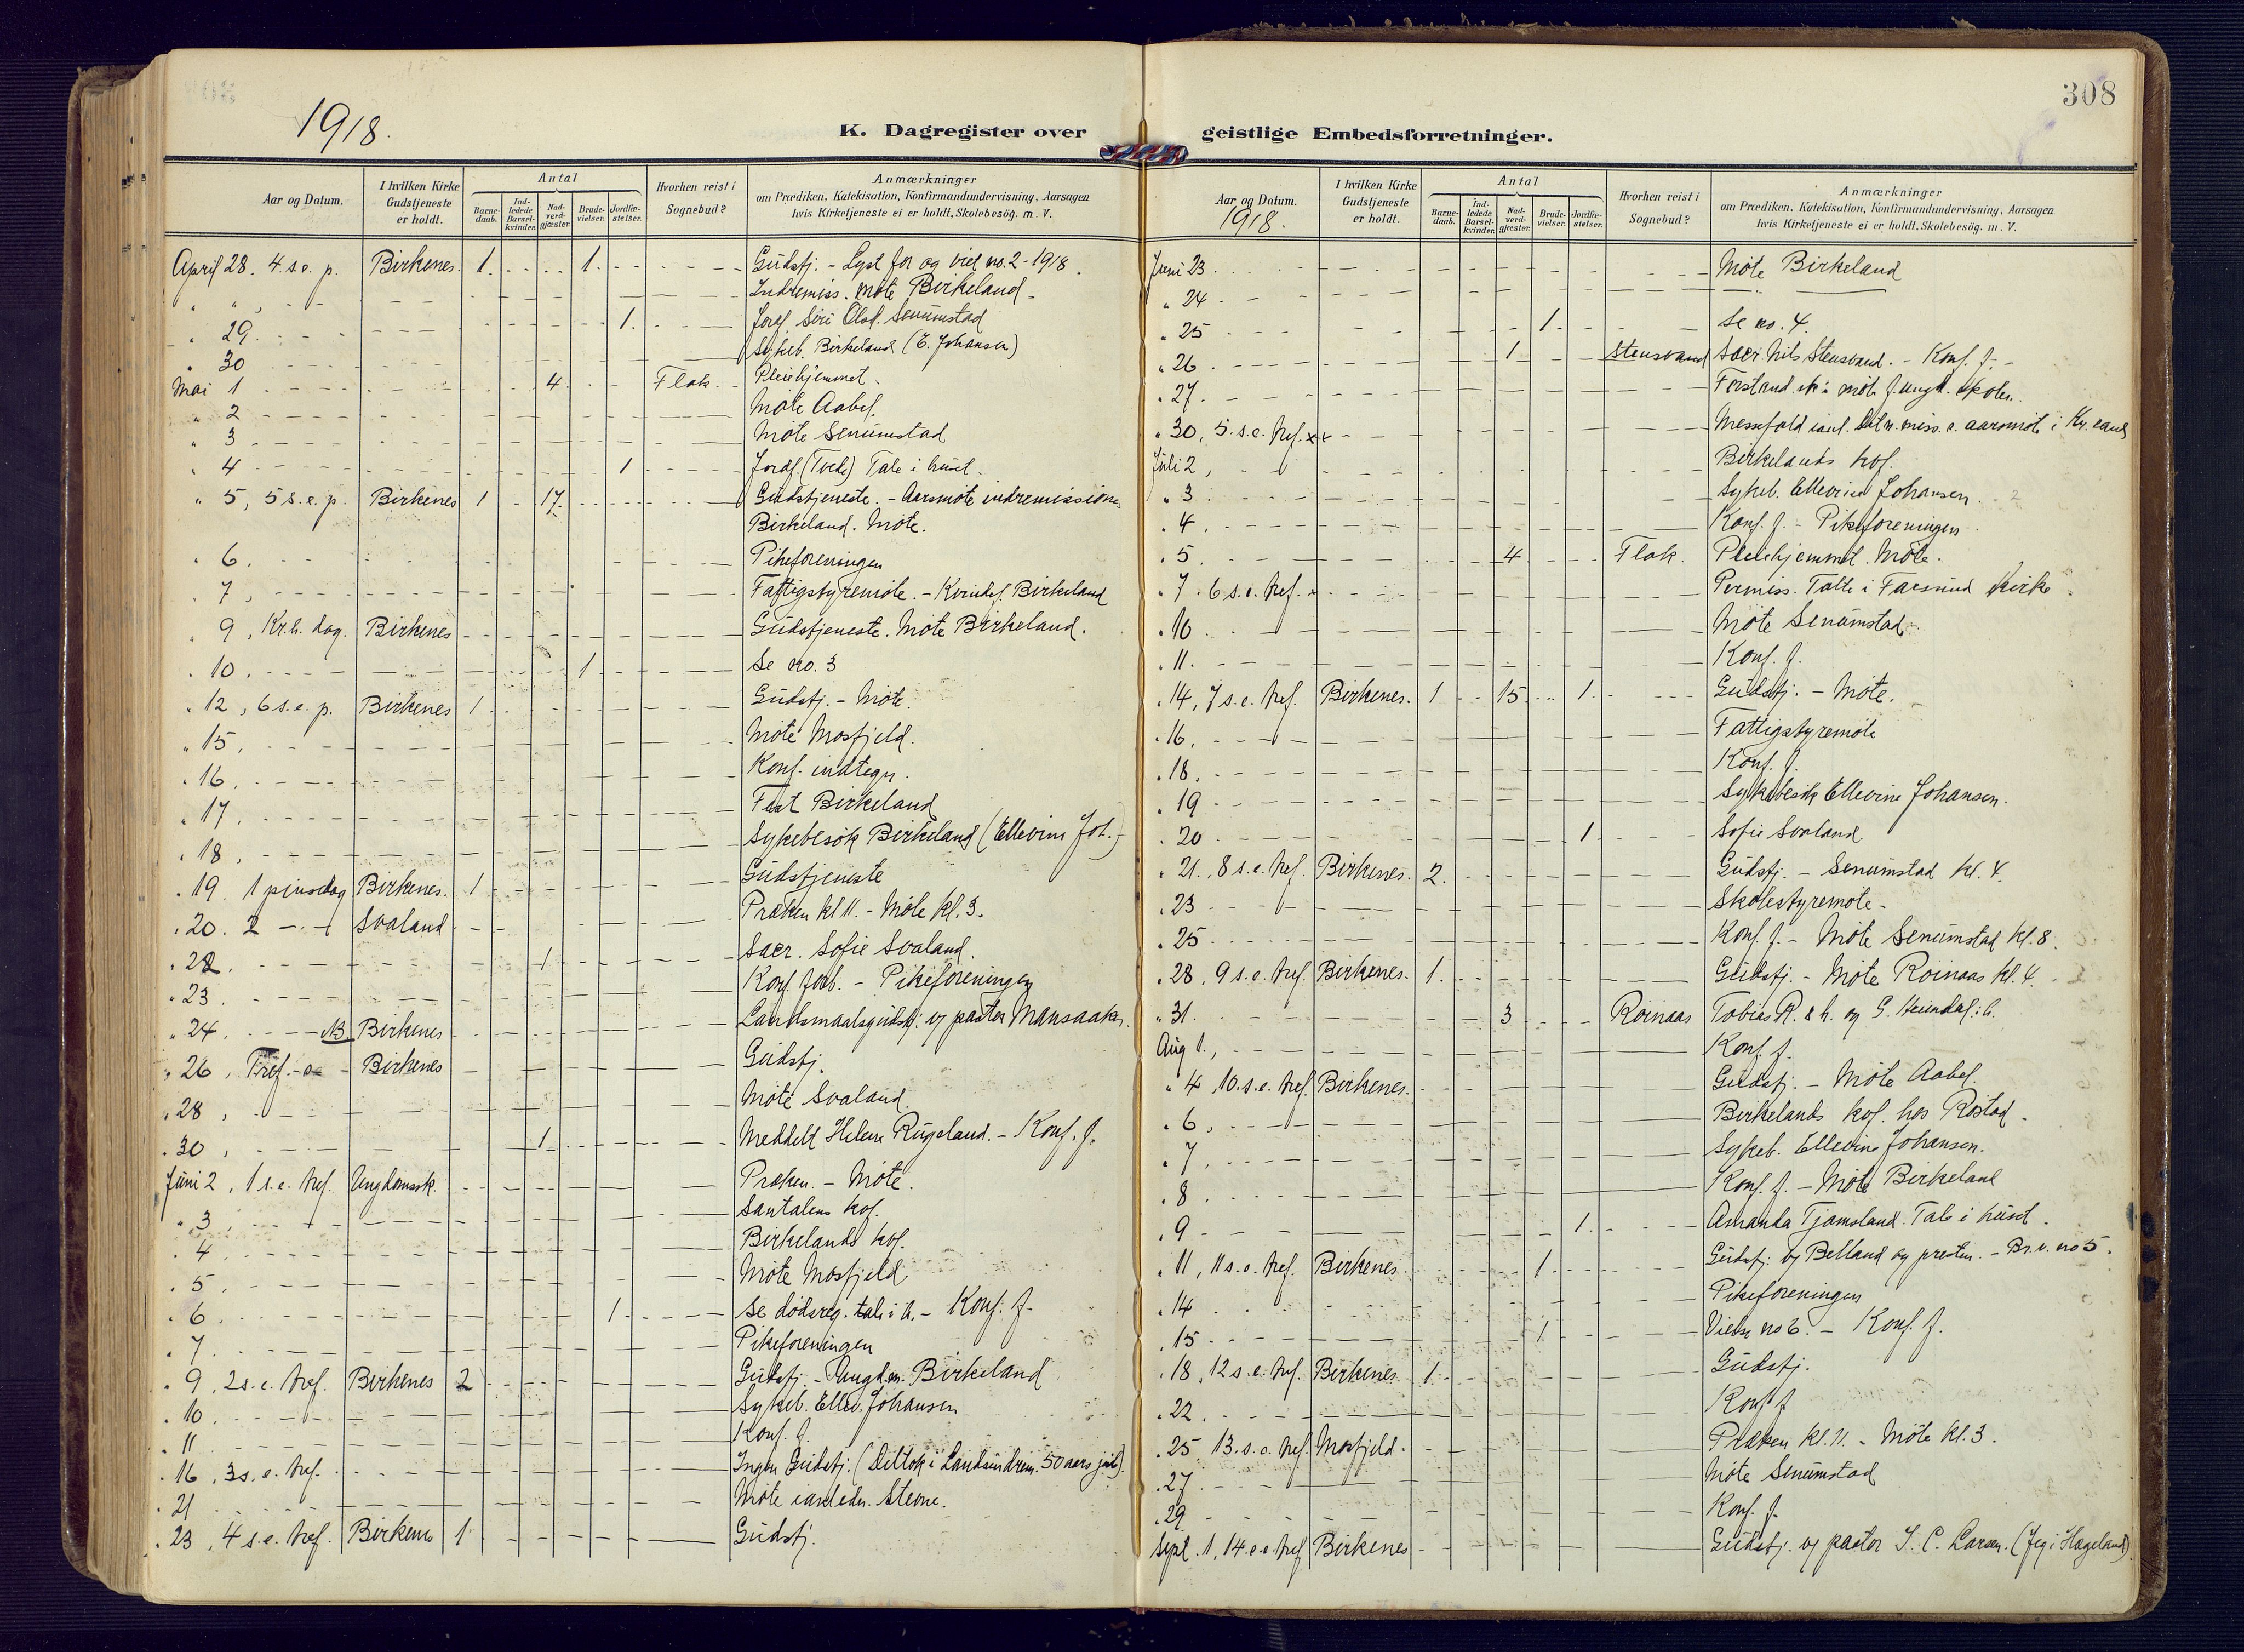 308
1918.
K. Dagregister over geistlige Embedsforretninger.
Aar og Datum.
I hvilken Kirke Gudstjeneste er holdt.
Antal
Barne-daab.
Ind-ledede Barsel-kvinder.
Nad-verd-gjæster.
Brude-vielser.
Jordfæ-stelser.
Hvorhen reist i Sognebud?
Anmærkninger
om Prædiken, Katekisation, Konfirmandundervisning, Aarsagen
hvis Kirketjeneste ei er holdt, Skolebesög. m. V.
April 28. 4. s. e. p. Birkenes. 1. 1. Gudstj. - Lyst for og viet no. 2 - 1918.
" " Indremiss. møte Birkeland.
" 29. 1. Jordf. Siri Olsd. Senumstad
" 30 Sykeb. Birkeland (E. Johansen)
Mai 1 4. Flak. Pleiehjemmet.
" 2 Møte Aabel.
" 3 Møte Senumstad
" 4 1 Jordf. (Tvede) Tale i huset.
" 5, 5 s. e. p. Birkenes 1 17. Gudstjeneste. - Aarsmøte indremissionen
Birkeland. Møte.
" 6. Pikeforeningen
" 7, Fattigstyremøte. - Kvindef. Birkeland
" 9, Kr. h. dag. Birkenes Gudstjeneste. Møte Birkeland.
" 10. 1 Se no. 3
" 12, 6 s. e. p. Birkenes 1 Gudstj. - Møte.
" 15, Møte Mosfjeld.
" 16, Konf. indtegn.
" 17. Fest Birkeland
" 18, Sykebesøk Birkeland (Ellevine Joh.)
" 19. 1 pinsedag Birkenes. 1 Gudstjeneste
" 20. 2 - " - Svaland Præken kl 11. - Møte kl. 3.
" 22. 1 Sacr. Sofie Svaland.
" 23. Konf. forb. - Pikeforeningen
" 24. NB. Birkenes Landsmaalsgudstj. v/ pastor Mansaaker.
" 26, Tref. s. Birkenes Gudstj.
" 28, Møte Svaland.
" 30, 1 Meddelt Helene Rugsland. - Konf. f.
Juni 2, 1 s. e. tref. Ungdomssk. Præken. - Møte.
" 3, Santalens kvf.
" 4 Birkelands kvf.
" 5. Møte Mosfjeld
" 6. 1 Se dødsreg. tale i h. - Konf. f.
" 7. Pikeforeningen
" 9, 2 s. e. tref. Birkenes 2 Gudstj. - Ungdm. Birkeland
" 10. Sykeb. Ellev. Johansen
" 11 Konf. f.
" 16, 3 s. e. tref. Ingen Gudstj. (Deltok i Landsindrem. 50 aars jub.)
" 21 Møte
" 23, 4 s. e. tref. Birkenes 1 Gudstj.
Aar og Datum.
1918.
I hvilken Kirke Gudstjeneste er holdt.
Antal
Barne-daab.
Ind-ledede Barsel-kvinder.
Nad-verd-gjæster.
Brude-vielser.
Jordfæ-stelser.
Hvorhen reist i Sognebud?
Anmærkninger
om Prædiken, Katekisation, Konfirmandundervisning, Aarsagen
hvis Kirketjeneste ei er holdt, Skolebesög. m. V.
Juni 23 Møte Birkeland
" 24 "
" 25 1. Se no. 4.
" 26 1 Stensvand Sacr. Nils Stensvand. - Konf. f. -
" 27. møte f. ungd. skolen.
" 30, 5. s. e. tref. Messefald
Juli 2, Birkelands kvf.
" 3 Sykeb. Ellevine Johansen.
" 4. Konf. f. - Pikeforeningen
" 5. 4 Flak. Pleiehjemmet. Møte.
" 7. 6 s. e. tref. Permiss. Talte i Farsund kirke.
" 10. Møte Senumstad
" 11. Konf. f.
" 14, 7 s. e. tref. Birkenes. 1 15. 1. Gudstj. - Møte.
" 16. Fattigstyremøte
" 18. Konf. f.
" 19 Sykebesøk Ellevine Johansen.
" 20 1. Sofie Svaland
" 21., 8 s. e. tref. Birkenes. 2. Gudstj. - Senumstad kl. 4.
" 23 Skolestyremøte -
" 25 Konf. f. - Møte Senumstad kl. 8.
" 28, 9 s. e. tref. Birkenes. 1. Gudstj. - Møte Røinaas kl. 4.
" 31. 3 Røinaas Tobias R.
Aug 1., Konf. f.
" 4, 10. s. e. tref. Birkenes. Gudstj. - Møte Aabel.
" 6, Birkelands kvf. hos Rostad.
" 7, Sykeb. Ellevine Johansen.
" 8. Konf. f. - Møte Birkeland
" 9 1. Amanda Tjamsland. Tale i huset.
" 11, 11 s. e. tref. Birkenes. 1. Gudstj. v/ Belland og presten. - Br. v. no 5.
" 14 Pikeforeningen
" 15 1 Vielse no 6. - Konf. f.
" 18, 12 s. e. tref. Birkenes. 1. Gudstj.
" 22. Konf. f
" 25 13. s. e. tref. Mosfjeld. Præken kl. 11. - Møte kl. 3.
" 27. Møte Senumstad
" 29 Konf. f.
Sept. 1, 14. s. e. tref Birkenes Gudstj. v/ pastor S. C. Larsen. (Jeg i Hægeland)